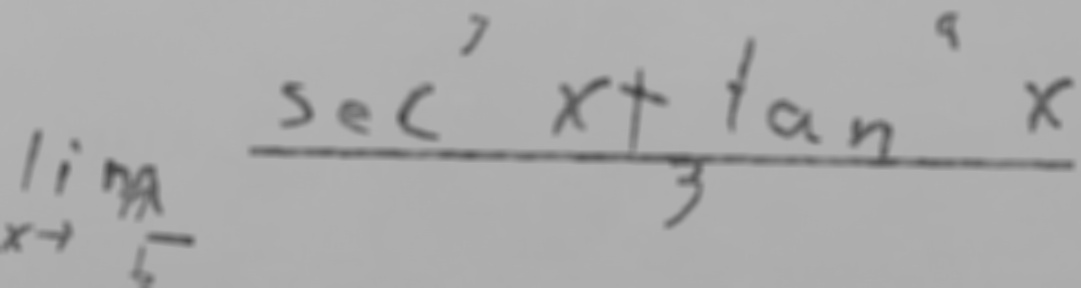 lim x→ sec⁷ x + tan x / 3